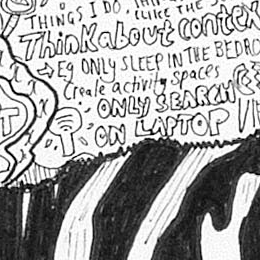 THINGS I DO. THI
LIKE THE
Think about contex
→ Eg ONLY SLEEP IN THE BEDRO
Create activity spaces
ONLY SEARCH
ON LAPTOP